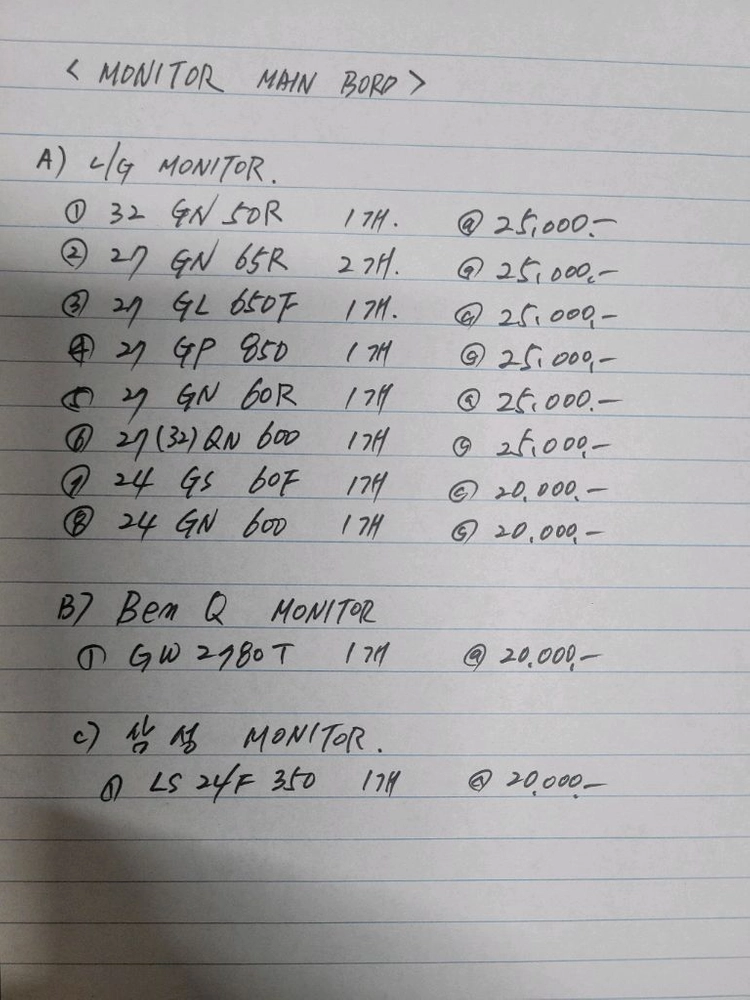 < MONITOR MAIN BORD >
A) L/G MONITOR.
① 32 GN 50R 1개. @ 25,000.-
② 27 GN 65R 2개. @ 25,000.-
③ 27 GL 650F 1개. @ 25,000.-
④ 27 GP 850 1개 @ 25,000.-
⑤ 27 GN 60R 1개 @ 25,000.-
⑥ 27(32)QN 600 1개 @ 25,000.-
⑦ 24 GS 60F 1개 @ 20,000.-
⑧ 24 GN 600 1개 @ 20,000.-
B) Ben Q MONITOR
① GW 2780T 1개 @ 20,000.-
C) 삼성 MONITOR.
① LS 24F 350 1개 @ 20,000.-